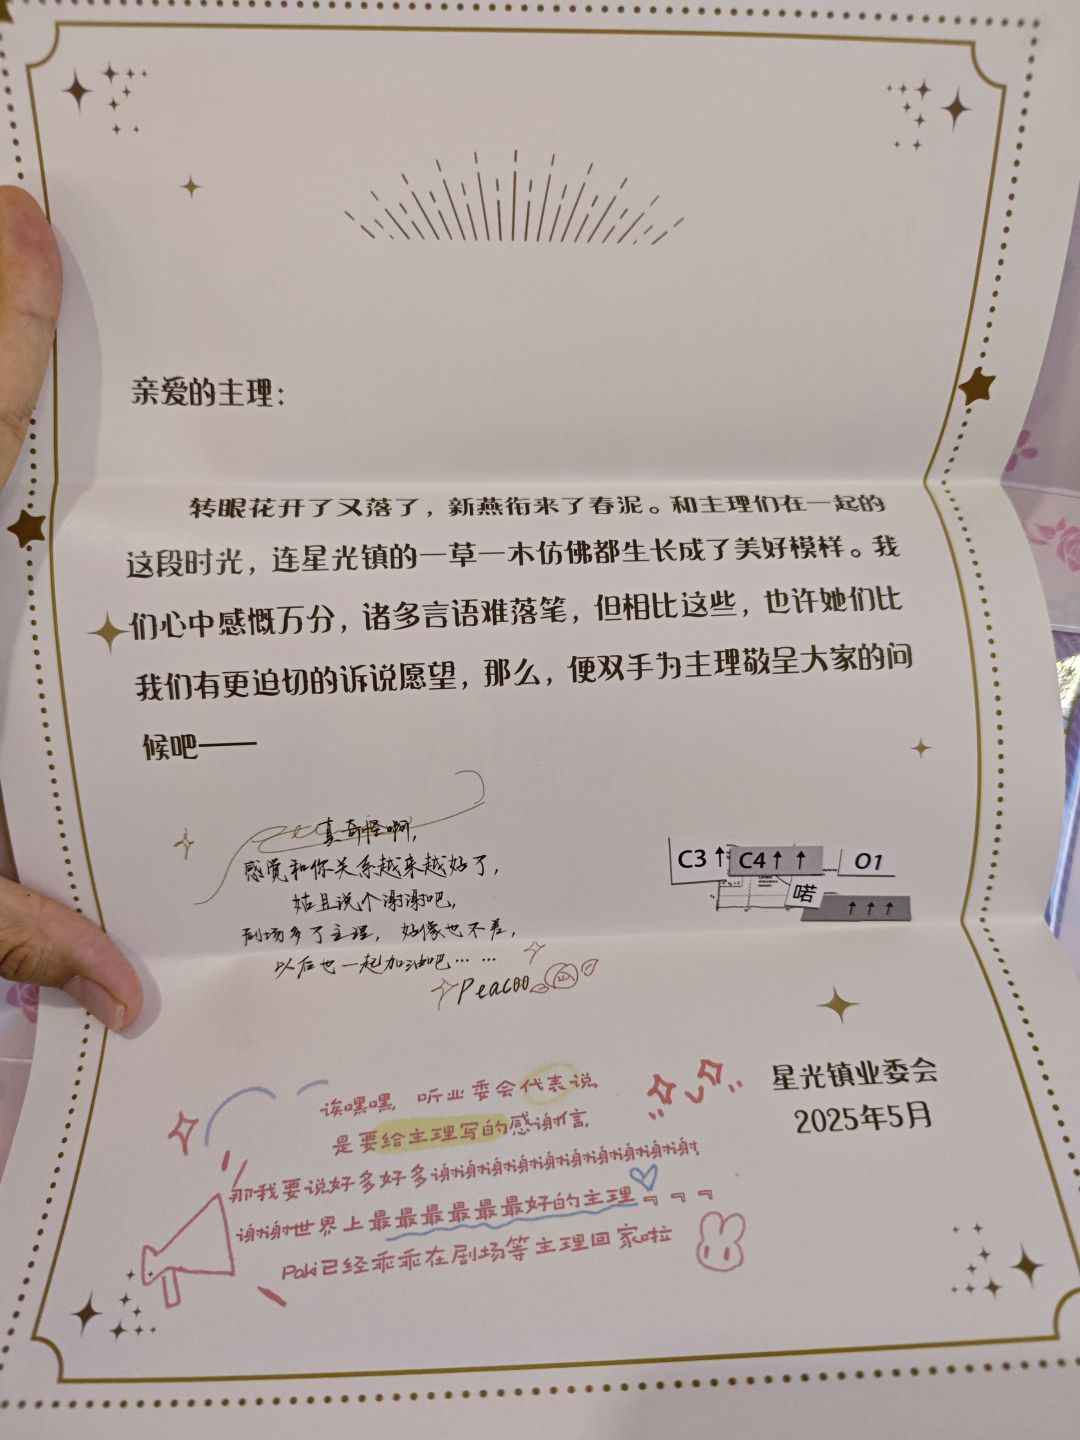 亲爱的主理：
转眼花开了又落了，新燕衔来了春泥。和主理们在一起的
这段时光，连星光镇的一草一木仿佛都生长成了美好模样。我
们心中感慨万分，诸多言语难落笔，但相比这些，也许她们比
我们有更迫切的诉说愿望，那么，便双手为主理敬呈大家的问
候吧——
真奇怪啊，
感觉和你关系越来越好了，
姑且说个谢谢吧，
剧场多了主理，好像也不差，
以后也一起加油吧……
Peacoo
C3↑ C4↑ ↑ O1
喏 ↑ ↑ ↑
诶嘿嘿，听业委会代表说，
是要给主理写的感谢信，
那我要说好多好多谢谢谢谢谢谢谢谢谢谢谢，
谢谢世界上最最最最最最好的主理
Poki已经乖乖在剧场等主理回家啦
星光镇业委会
2025年5月